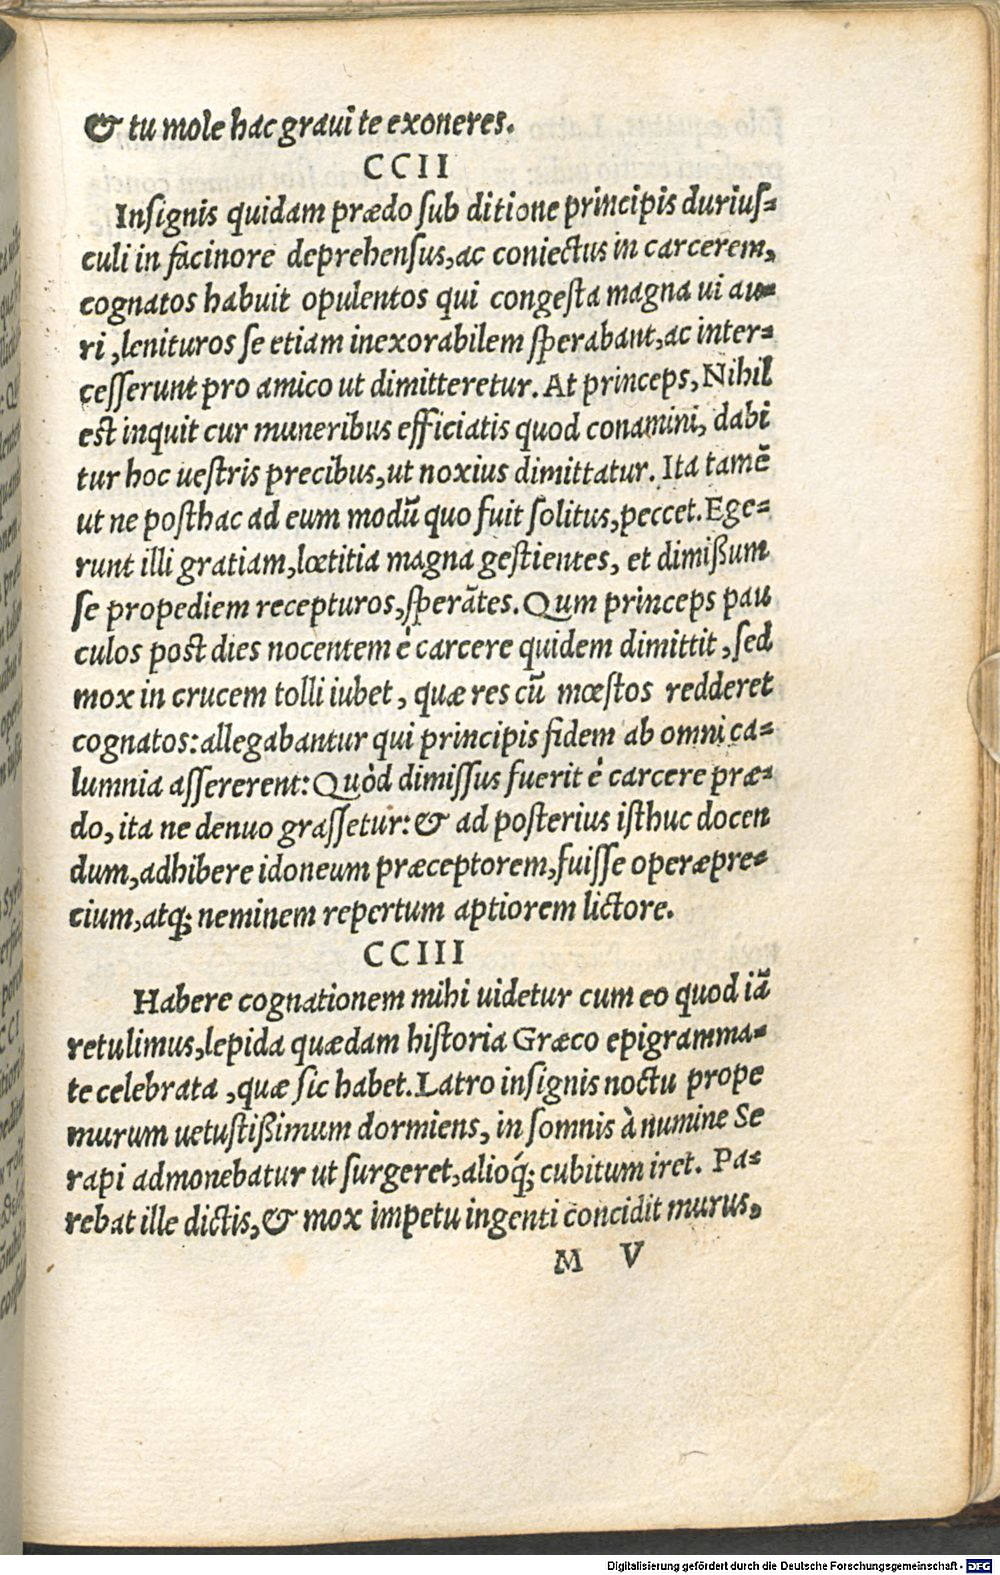 & tu mole hac graui te exoneres.
CCII
Insignis quidam prædo sub ditione principis durius-
culi in facinore deprehensus, ac coniectus in carcerem,
cognatos habuit opulentos qui congesta magna ui au-
ri, lenituros se etiam inexorabilem sperabant, ac inter-
cesserunt pro amico ut dimitteretur. At princeps, Nihil
est inquit cur muneribus efficiatis quod conamini, dabi
tur hoc uestris precibus, ut noxius dimittatur. Ita tamē
ut ne posthac ad eum modū quo fuit solitus, peccet. Ege-
runt illi gratiam, lœtitia magna gestientes, et dimißum
se propediem recepturos, sperātes. Qum princeps pau
culos post dies nocentem è carcere quidem dimittit, sed
mox in crucem tolli iubet, quæ res cū mœstos redderet
cognatos: allegabantur qui principis fidem ab omni ca-
lumnia assererent: Quòd dimissus fuerit è carcere præ-
do, ita ne denuo grassetur: & ad posterius isthuc docen
dum, adhibere idoneum præceptorem, fuisse operæpre-
cium, atq; neminem repertum aptiorem lictore.
CCIII
Habere cognationem mihi uidetur cum eo quod iā
retulimus, lepida quædam historia Græco epigramma-
te celebrata, quæ sic habet. Latro insignis noctu prope
murum uetustißimum dormiens, in somnis à numine Se
rapi admonebatur ut surgeret, alioq́; cubitum iret. Pa-
rebat ille dictis, & mox impetu ingenti concidit murus,
M V
Digitalisierung gefördert durch die Deutsche Forschungsgemeinschaft - DFG